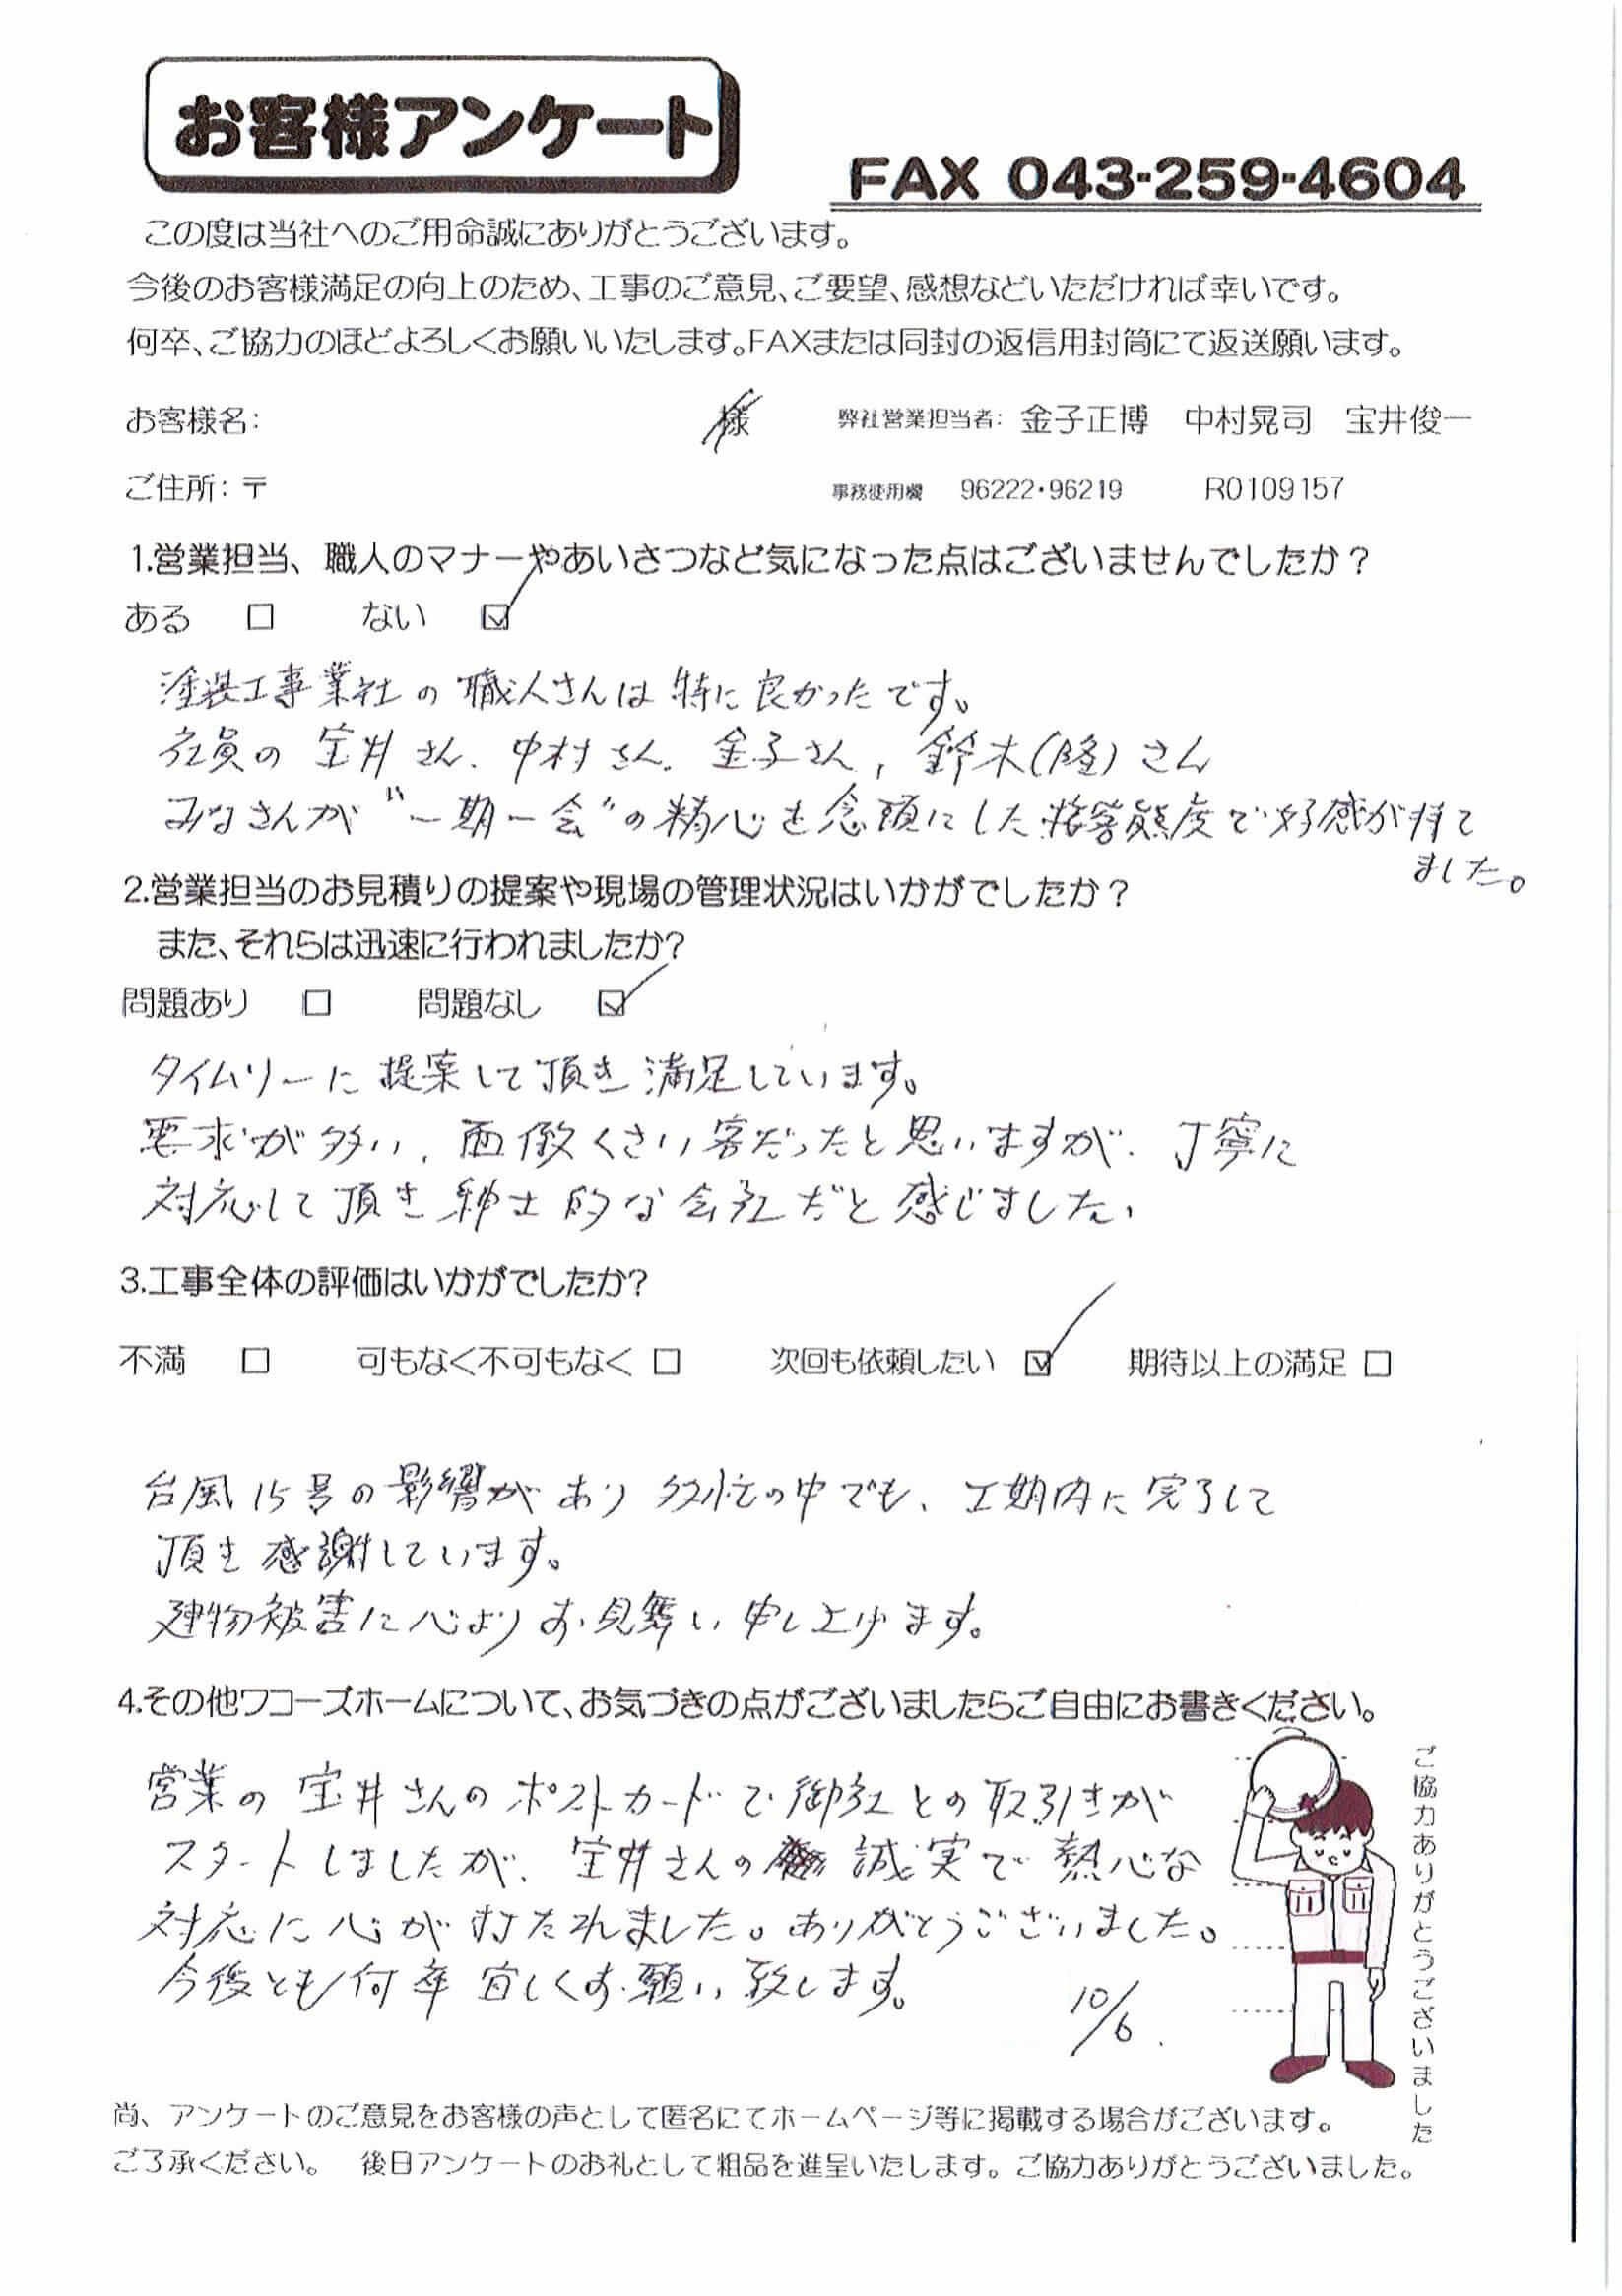 お客様アンケート
FAX 043-259-4604
この度は当社へのご用命誠にありがとうございます。
今後のお客様満足の向上のため、工事のご意見、ご要望、感想などいただければ幸いです。
何卒、ご協力のほどよろしくお願いいたします。FAXまたは同封の返信用封筒にて返送願います。
お客様名: 様 弊社営業担当者: 金子正博 中村晃司 宝井俊一
ご住所: 〒 事務使用欄 96222・96219 R0109157
1.営業担当、職人のマナーやあいさつなど気になった点はございませんでしたか?
ある □ ない ☑
塗装工事業社の職人さんは特に良かったです。
社員の宝井さん、中村さん、金子さん、鈴木(隆)さん
みなさんが“一期一会”の精心を念頭にした接客態度で好感が持て
ました。
2.営業担当のお見積りの提案や現場の管理状況はいかがでしたか?
また、それらは迅速に行われましたか?
問題あり □ 問題なし ☑
タイムリーに提案して頂き満足しています。
要求が多い、面倒くさい客だったと思いますが、丁寧に
対応して頂き紳士的な会社だと感じました。
3.工事全体の評価はいかがでしたか?
不満 □ 可もなく不可もなく □ 次回も依頼したい ☑ 期待以上の満足 □
台風15号の影響があり多忙の中でも、工期内に完了して
頂き感謝しています。
建物被害に心よりお見舞い申し上げます。
4.その他ワコーズホームについて、お気づきの点がございましたらご自由にお書きください。
営業の宝井さんのポストカードで御社との取引きが
スタートしましたが、宝井さんの誠実で熱心な
対応に心が打たれました。ありがとうございました。
今後とも何卒宜しくお願い致します。
10/6.
ご協力ありがとうございました
尚、アンケートのご意見をお客様の声として匿名にてホームページ等に掲載する場合がございます。
ご了承ください。 後日アンケートのお礼として粗品を進呈いたします。ご協力ありがとうございました。